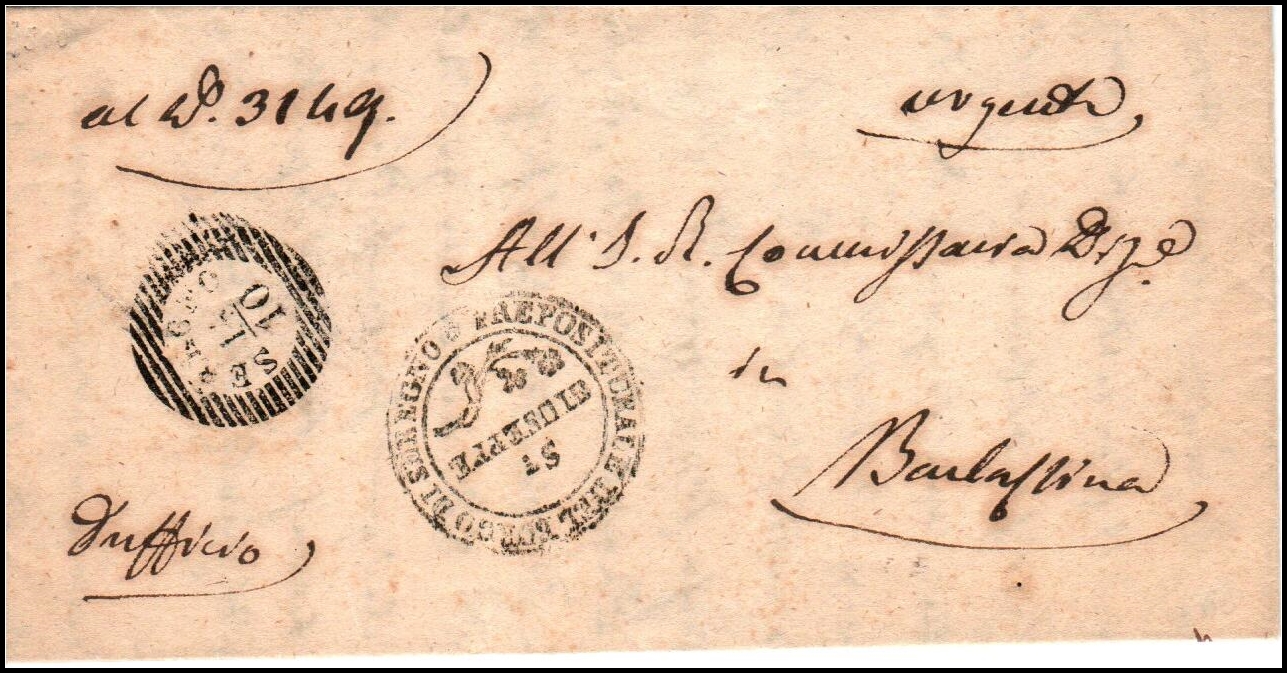 al N.º 3149.
urgente
All' I. R. Commissaria Dizle
in
Barlassina
D'ufficio
SEREGNO
10
PREPOSITURALE DEL BORGO DI SEREGNO
S.T
GIUSEPPE